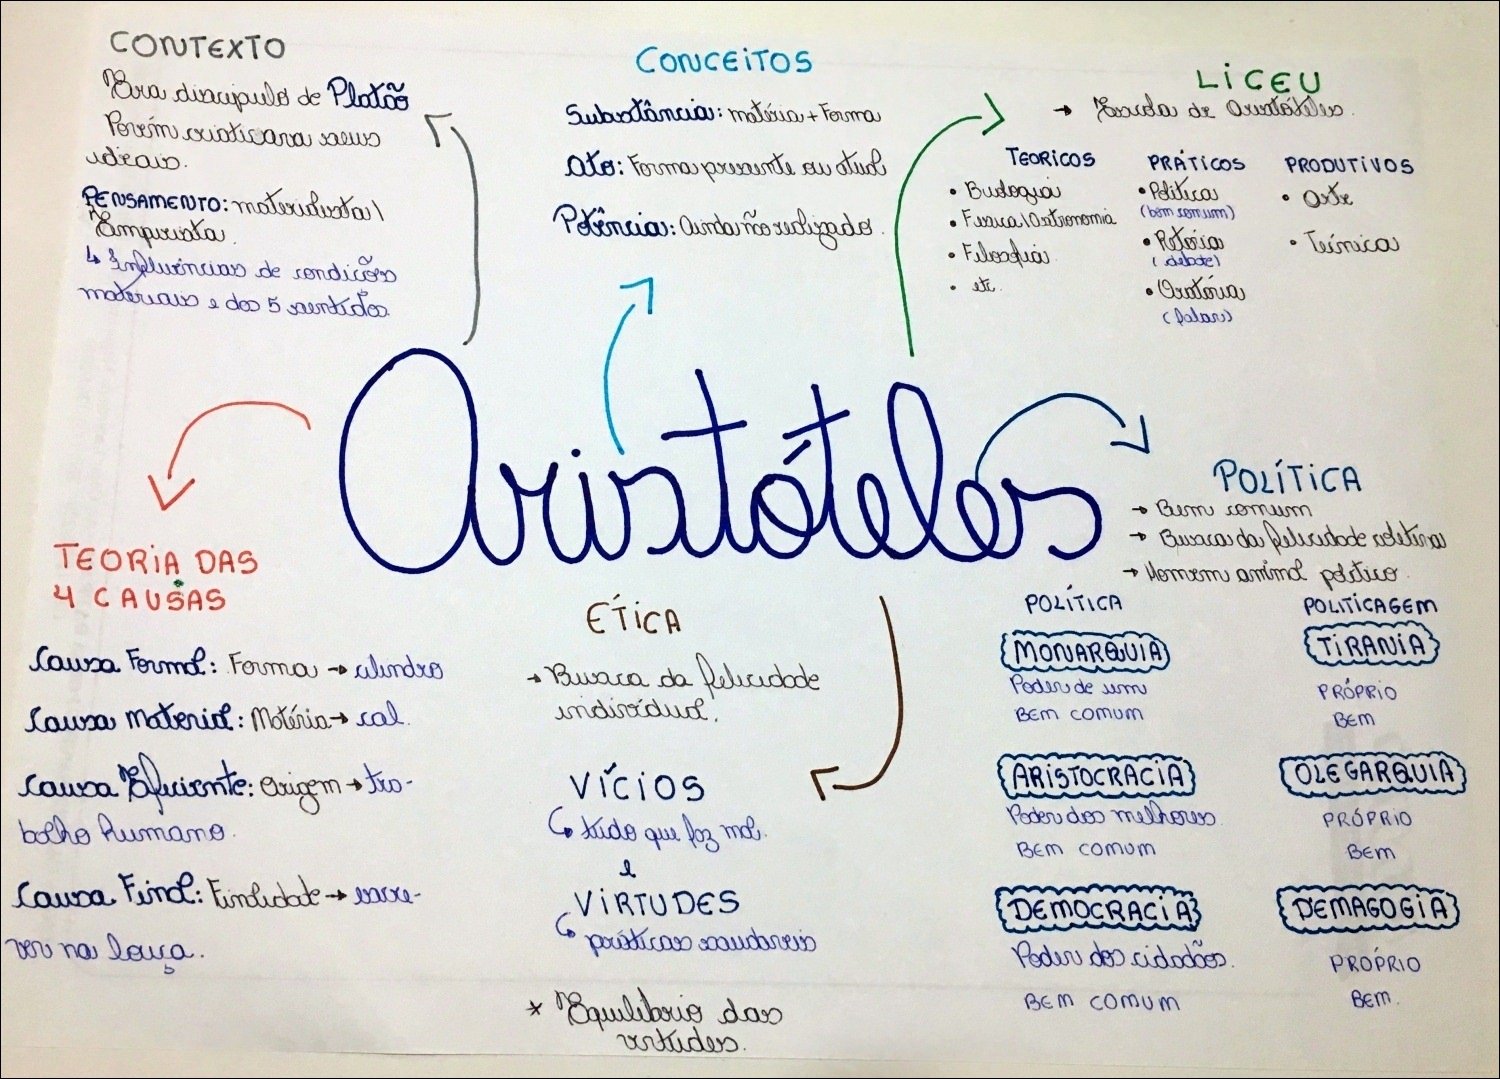 CONTEXTO
Era discípulo de Platão
Porém criticava seus
ideais.
PENSAMENTO: materialista/
Empirista.
↳ Influências de condições
materiais e dos 5 sentidos.
CONCEITOS
Substância: matéria + Forma
Ato: Forma presente ou atual
Potência: Ainda não realizado.
LICEU
→ Escola de Aristóteles.
TEORICOS
• Biologia
• Física/Astronomia
• Filosofia
• etc.
PRÁTICOS
• Política
(bem comum)
• Retória
(debate)
• Oratória
(falar)
PRODUTIVOS
• Arte
• Técnica
Aristóteles
TEORIA DAS
4 CAUSAS
Causa Formal: Forma → cilindro
Causa Material: Matéria → cal.
Causa Eficiente: Origem → tra-
balho humano.
Causa Final: Finalidade → escre-
ver na louça.
ÉTICA
→ Busca da felicidade
individual.
VÍCIOS
↳ tudo que faz mal.
e
VIRTUDES
↳ práticas saudaveis
* Equilíbrio das
virtudes.
POLÍTICA
→ Bem comum
→ Busca da felicidade coletiva
→ Homem animal político.
POLÍTICA POLITICAGEM
MONARQUIA TIRANIA
Poder de um PRÓPRIO
BEM COMUM BEM
ARISTOCRACIA OLEGARQUIA
Poder dos melhores. PRÓPRIO
BEM COMUM BEM
DEMOCRACIA DEMAGOGIA
Poder dos cidadãos. PRÓPRIO
BEM COMUM BEM.